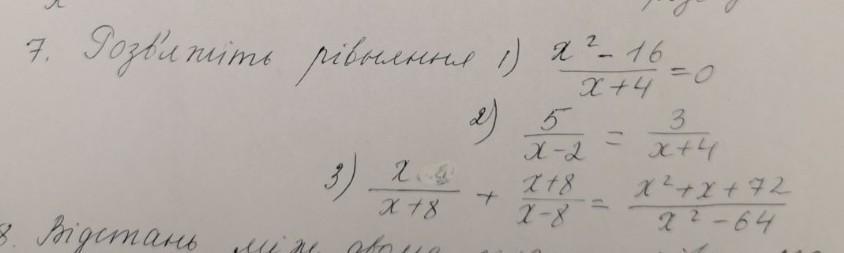 7. Розв'яжіть рівняння 1) (x² - 16)/(x + 4) = 0
2) 5/(x - 2) = 3/(x + 4)
3) x/(x + 8) + (x + 8)/(x - 8) = (x² + x + 72)/(x² - 64)
8. Відстань між двома